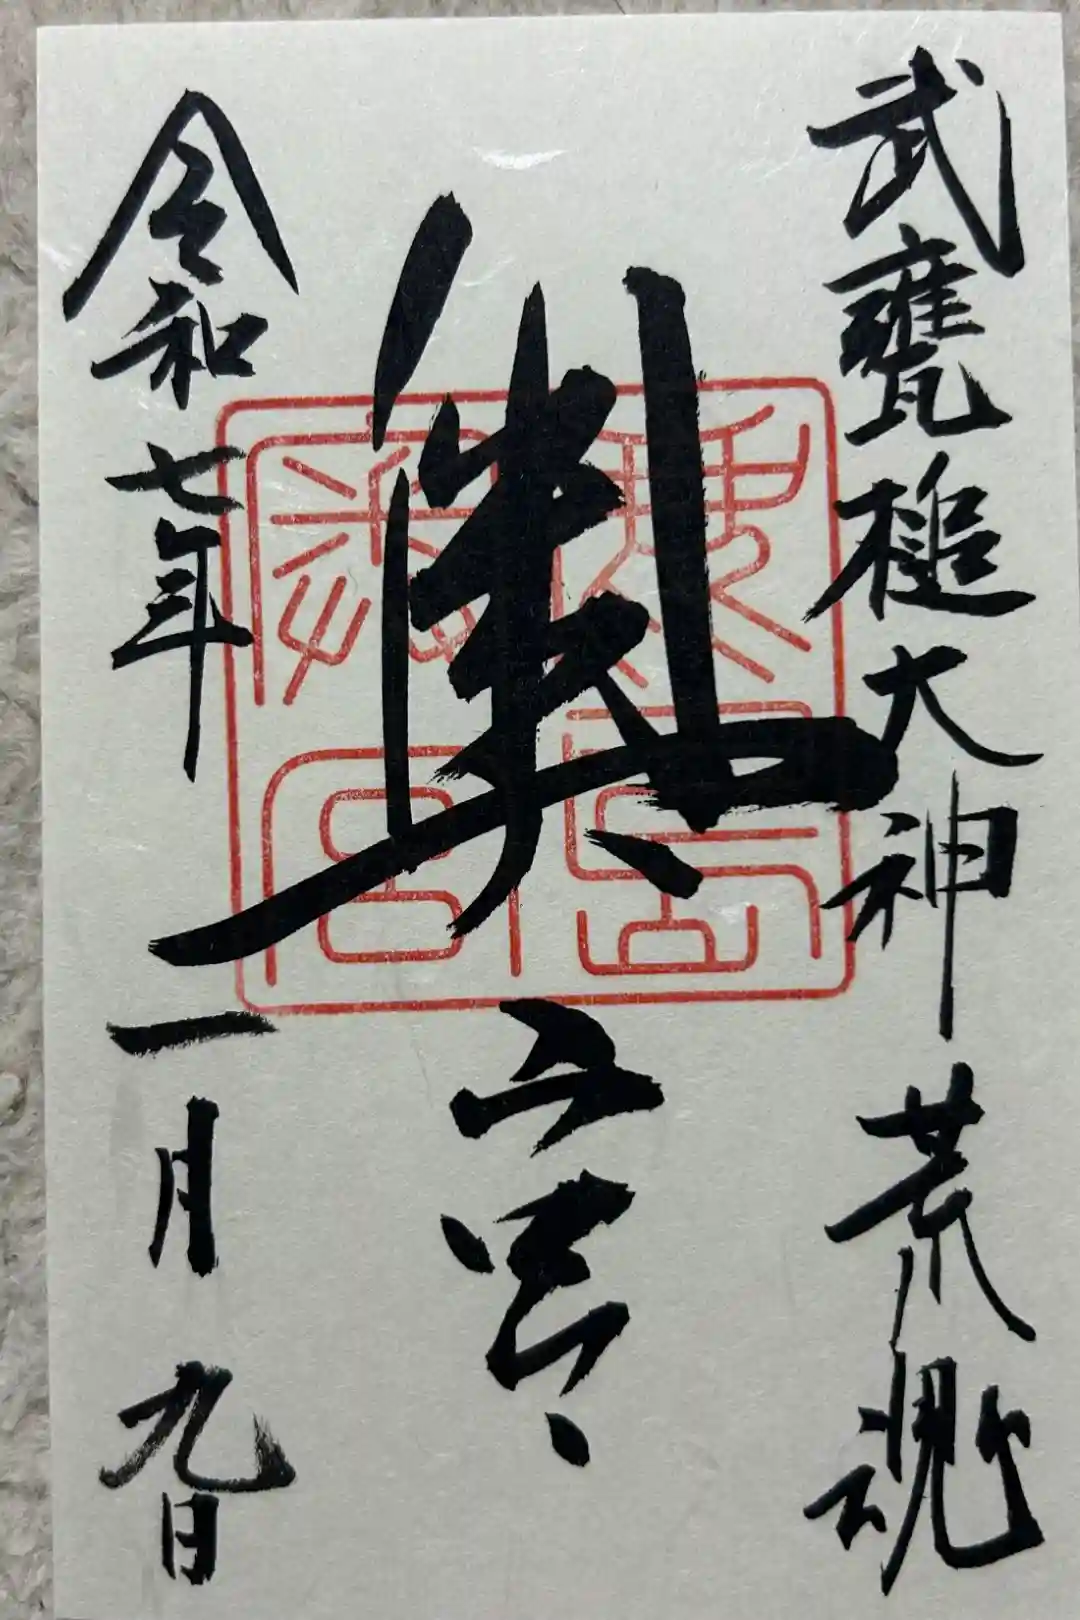 武甕槌大神 荒魂
奥宮
令和七年一月九日
鹿島奥宮